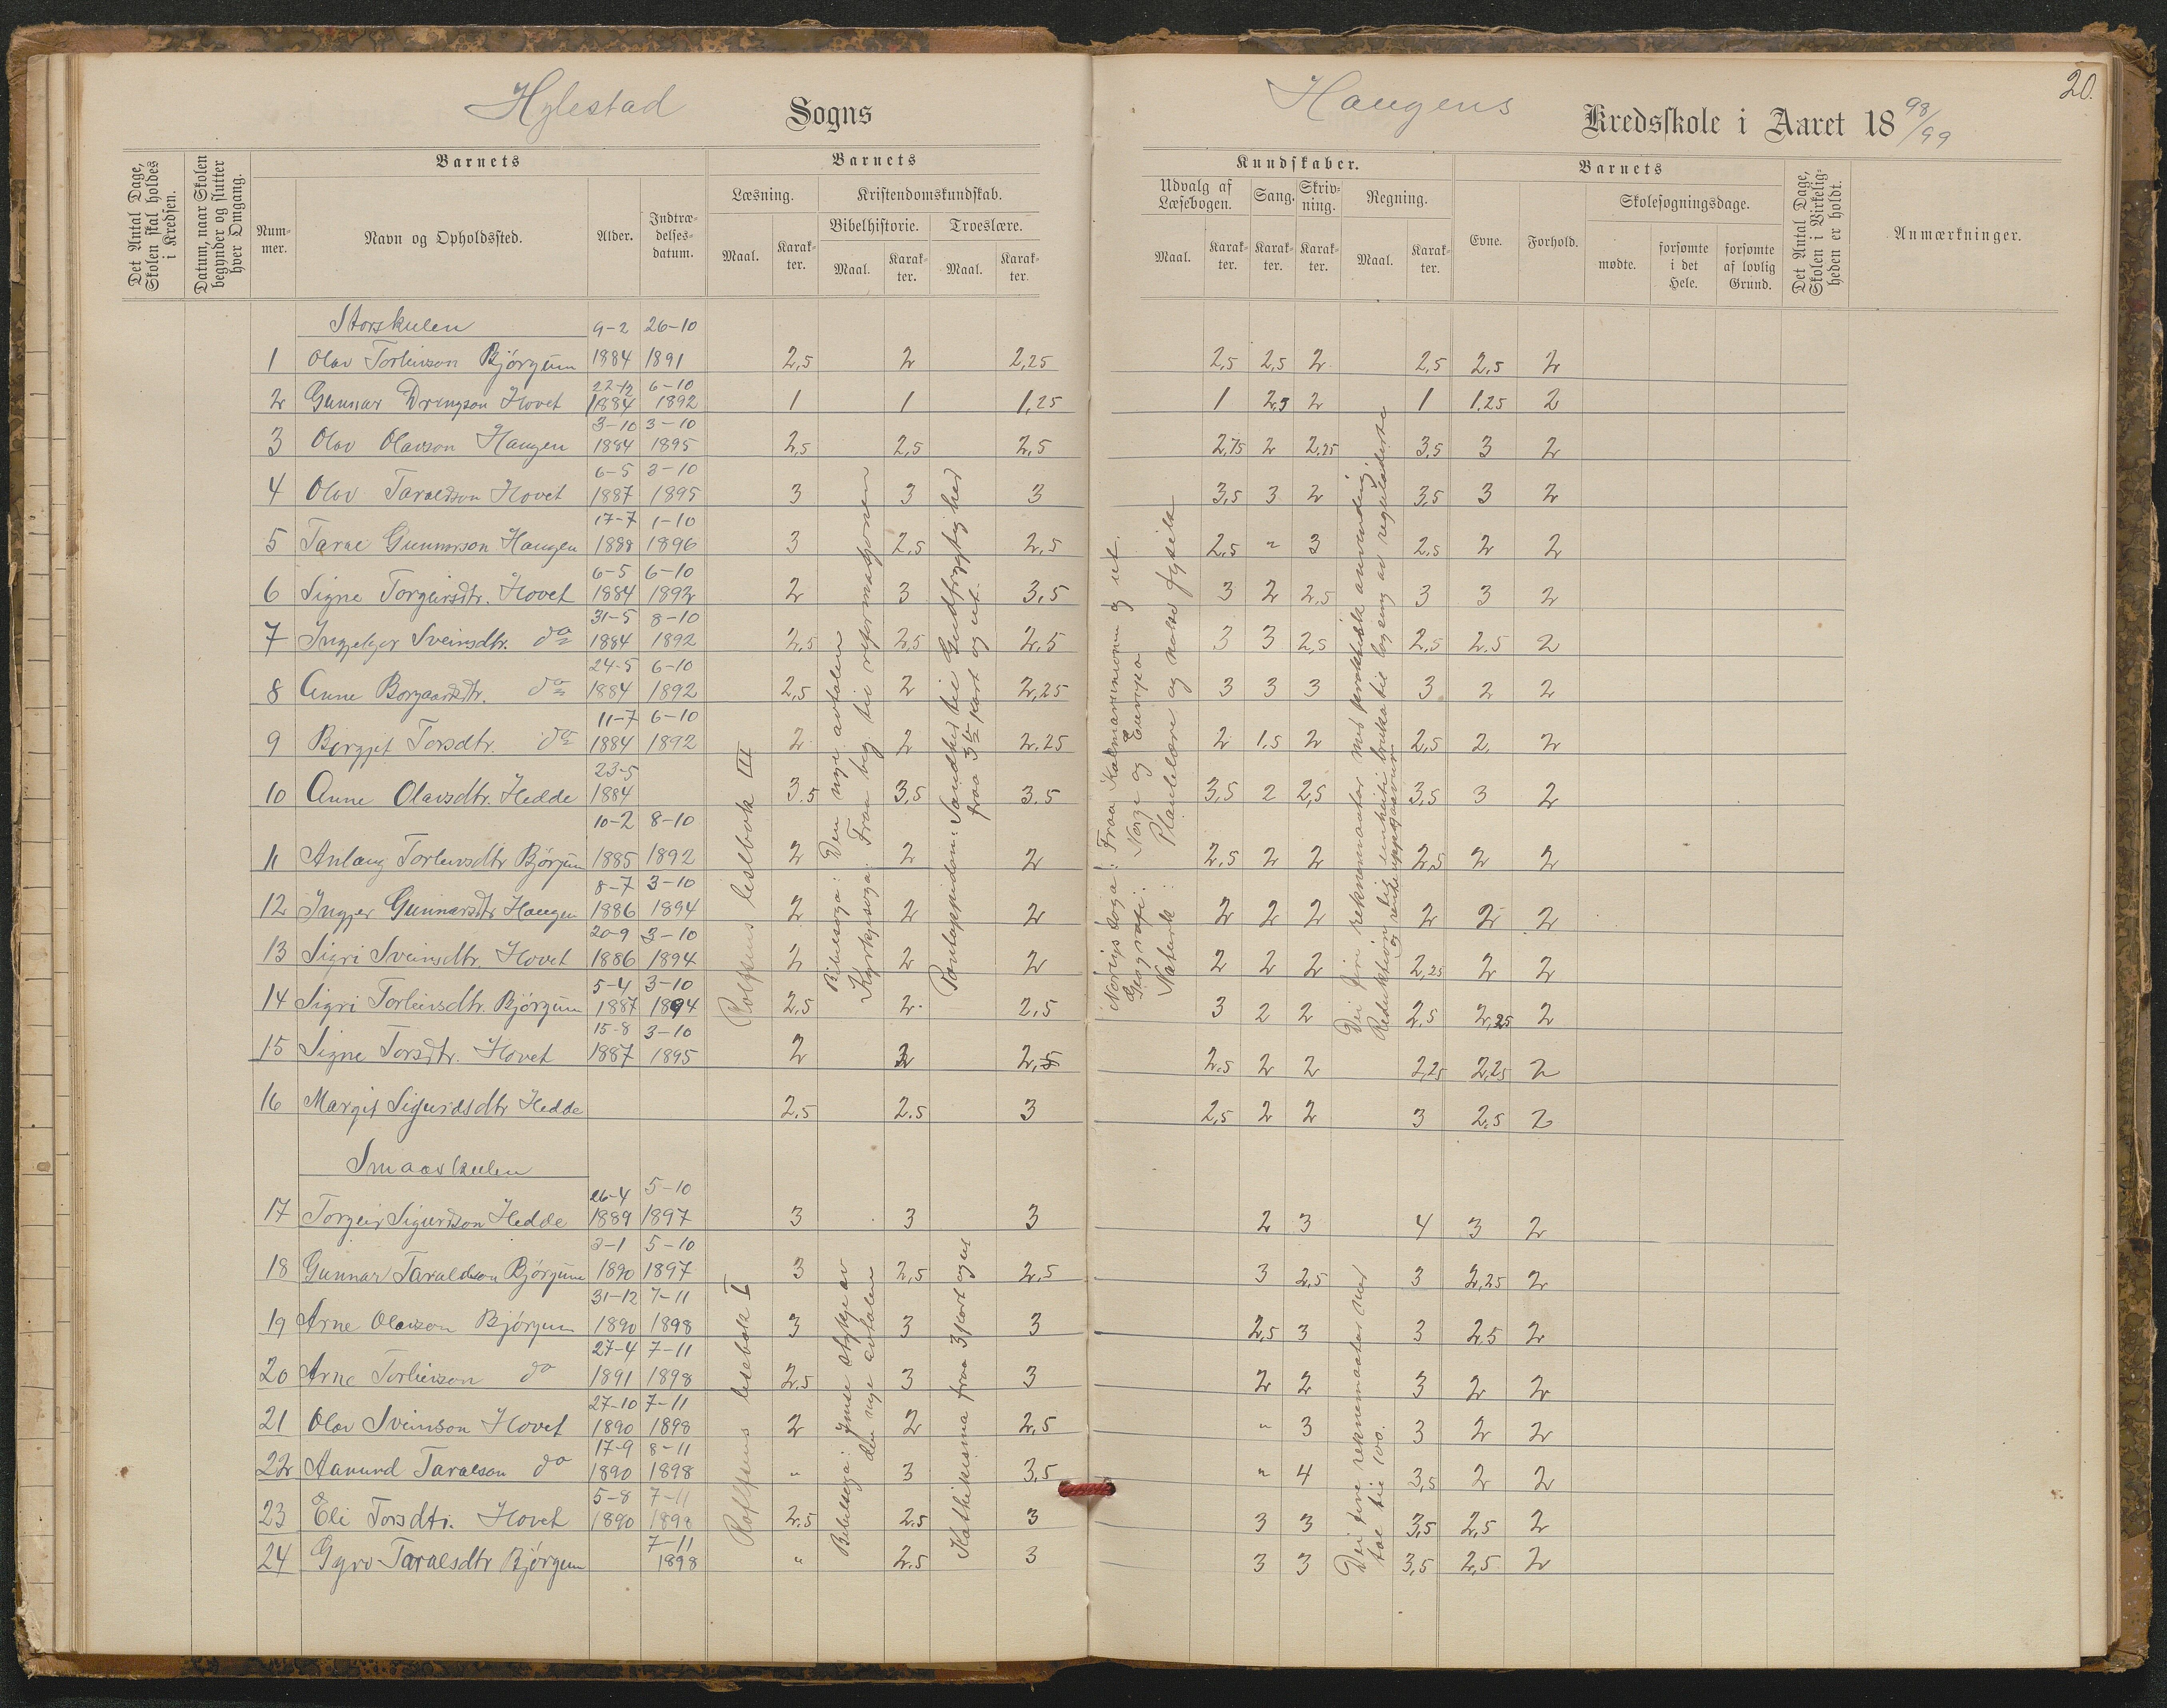 Hylestad Sogns Haugens Kredsskole i Aaret 1898/99
20.
Det Antal Dage, Skolen skal holdes i Kredsen.
Datum, naar Skolen begynder og slutter hver Omgang.
Barnets
Nummer.
Navn og Opholdssted.
Alder.
Indtrædelsesdatum.
Barnets
Læsning.
Maal.
Karakter.
Kristendomskundskab.
Bibelhistorie.
Maal.
Karakter.
Troeslære.
Maal.
Karakter.
Kundskaber.
Udvalg af Læsebogen.
Maal.
Karakter.
Sang.
Karakter.
Skrivning.
Karakter.
Regning.
Maal.
Karakter.
Barnets
Evne.
Forhold.
Skolesøgningsdage.
mødte.
forsømte i det Hele.
forsømte af lovlig Grund.
Det Antal Dage, Skolen i Virkeligheden er holdt.
Anmærkninger.
Storskulen
1 Olav Torleivson Bjórgum 9-2 1884 26-10 1891 2,5 2 2,25 2,5 2,5 2 2,5 2,5 2
2 Gunnar Drengson Hovet 22-12 1884 6-10 1892 1 1 1,25 1 2,5 2 1 1,25 2
3 Olav Olavson Haugen 3-10 1884 3-10 1895 2,5 2,5 2,5 2,75 2 2,25 3,5 3 2
4 Olav Taraldson Hovet 6-5 1887 3-10 1895 3 3 3 3,5 3 2 3,5 3 2
5 Tarae Gunnarson Haugen 17-7 1888 1-10 1896 3 2,5 2,5 2,5 " 3 2,5 2 2
6 Signe Torgeirsdtr. Hovet 6-5 1884 6-10 1892 2 3 3,5 3 2 2,5 3 3 2
7 Ingjebjør Sveinsdtr. do 31-5 1884 8-10 1892 2,5 2,5 2,5 3 3 2,5 2,5 2.5 2
8 Anne Borgaardtr. do 24-5 1884 6-10 1892 2,5 2 2,25 3 3 3 3 2 2
9 Bergjit Torsdtr. do 11-7 1884 6-10 1892 2 2 2,25 2 1.5 2 2,5 2. 2
10 Anne Olavsdtr. Hedde 23-5 1884 3.5 3,5 3.5 3,5 2 2,5 3,5 3 2
11 Anlaug Torleivsdtr Bjórgum 10-2 1885 8-10 1892 2 2 2 2,5 2 2 2,5 2 2
12 Ingjer Gunnarsdtr Haugen 8-7 1886 3-10 1894 2 2 2 2 2 2 2 2 2
13 Sigri Sveinsdtr. Hovet 20-9 1886 3-10 1894 2 2 2 2 2 2 2,25 2 2
14 Sigri Torleivsdtr. Bjórgum 5-4 1887 3-10 1894 2,5 2. 2,5 3 2 2 2,5 2,25 2
15 Signe Torsdtr. Hovet 15-8 1887 3-10 1895 2 2 2,5 2,5 2 2 2,25 2,25 2
16 Margit Sigurdsdtr Hedde 2,5 2.5 3 2,5 2 2 3 2,5 2
Rolfsens lesebok III
Bibelsoga: Den nye avtalen
Kyrkjesoga: Fraa beg. til reformasjonen
Pontoppidan: Sandhed til Gudfrygtighed
fraa 3die part og ut.
Norigs soga: Fraa Kalmarunionen og ut.
Geografi: Norge og Europa
Naturk: Plantelære og noko fysik
Dei fire reknemaatar med praktisk anvending
Smaaskulen
17 Torgeir Sigurdson Hedde 26-4 1889 5-10 1897 3 3 3 2 3 4 3 2
18 Gunnar Taraldson Bjórgum 2-1 1890 5-10 1897 3 2,5 2,5 3 2,5 3 2,25 2
19 Arne Olavson Bjórgum 31-12 1890 7-11 1898 3 3 3 2,5 3 3 2,5 2
20 Arne Torleivson do 27-4 1891 7-11 1898 2.5 3 3 2 2 3 2 2
21 Olav Sveinson Hovet 27-10 1890 7-11 1898 2 2 2,5 " 3 3 2 2
22 Aanund Taraeson do 17-9 1890 8-11 1898 " 3 3,5 " 4 3,5 2 2
23 Eli Torsdtr. Hovet 5-8 1890 7-11 1898 2.5 2.5 3 3 3 3,5 2,5 2
24 Gyro Taraesdtr Bjórgum 7-11 1898 " 2.5 3 3 3 3,5 2,5 2
Rolfsens lesebok I
Bibelsoga: Ymse stykje av
den nye avtalen
Kathekisma fraa 3 part og ut
Dei fire reknemaatar med
tal til 100.